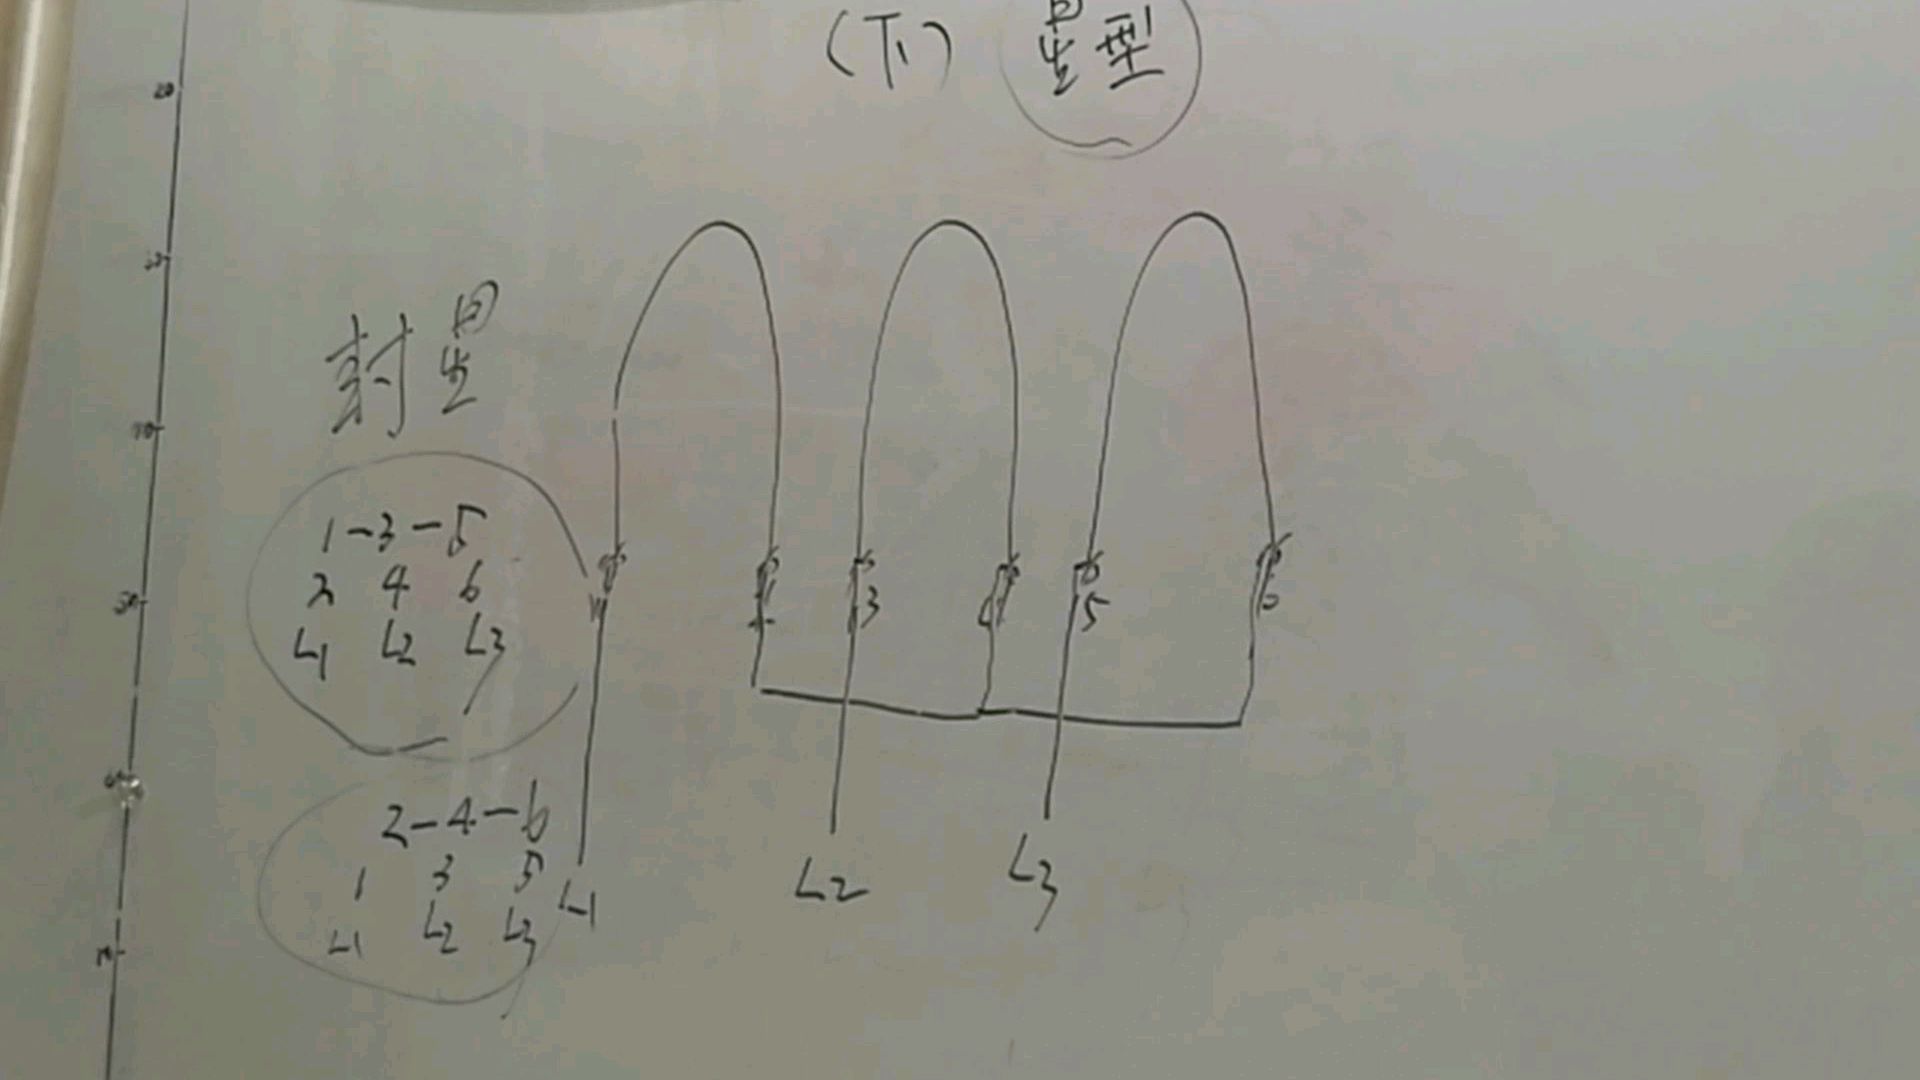 (下) 星型
20
封星
1-3-5
2 4 6
L1 L2 L3
3 5
2-4-6
1 3 5
L1 L2 L3
L1
L2
L3